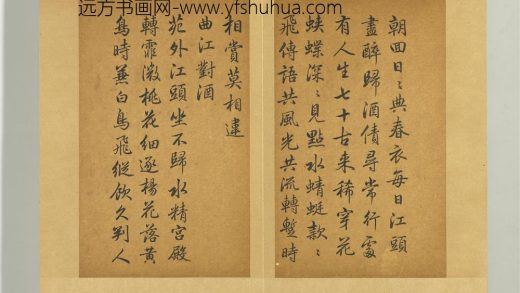 远方书画网-www.yfshuhua.com
朝回日〻典春衣每日江頭
盡醉歸酒債尋常行處
有人生七十古来稀穿花
蛺蝶深〻見點水蜻蜓款〻
飛傳語共風光共流轉暫時
相賞莫相違
曲江對酒
苑外江頭坐不歸水精宮殿
轉霏微桃花細逐楊花落黃
鳥時兼白鳥飛縱飲久判人